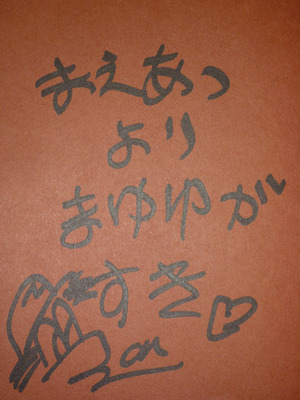 まえあつ
より
まゆゆが
すき♡